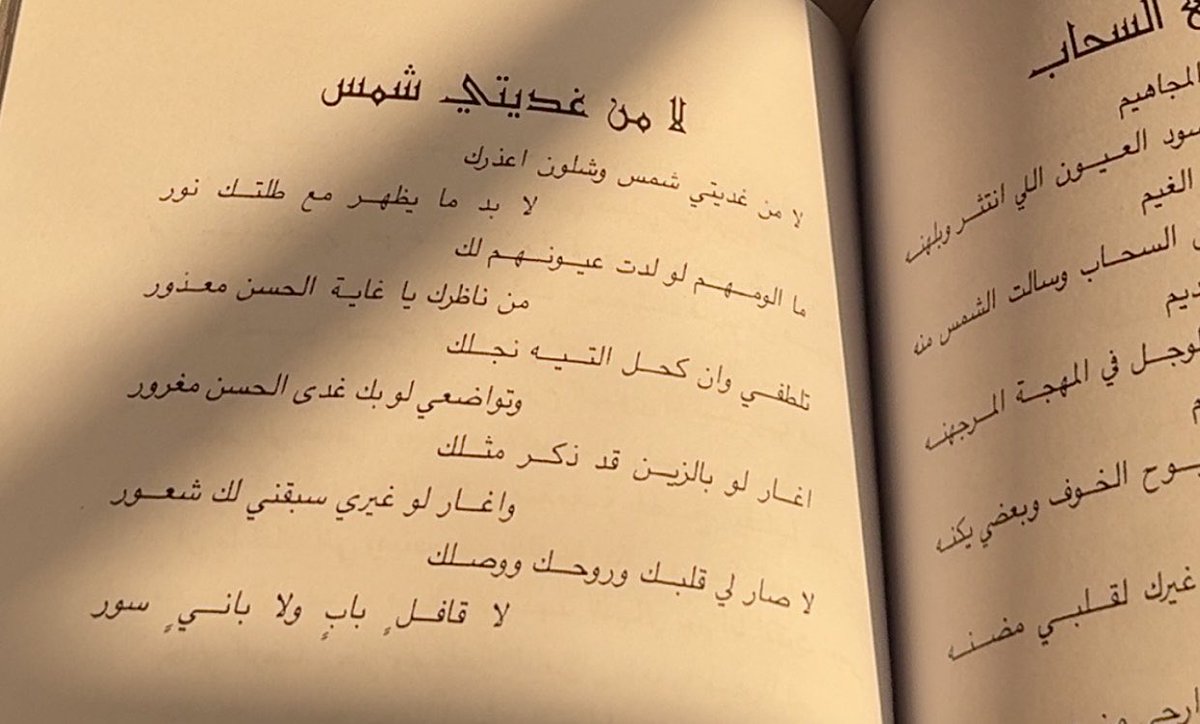 لا من غديتي شمس
لا من غديتي شمس وشلون اعذرك
لا بد ما يظهر مع طلتك نور
ما الومهم لو لدت عيونهم لك
من ناظرك يا غاية الحسن معذور
تلطفي وان كحل التيه نجلك
وتواضعي لو بك غدى الحسن مغرور
اغار لو بالزين قد ذكر مثلك
واغار لو غيري سبقني لك شعور
لا صار لي قلبك وروحك ووصلك
لا قافلٍ بابٍ ولا بانيٍ سور
السحاب
المجاهيم
سود العيون اللي انتثر وبلهنه
الغيم
السحاب وسالت الشمس منه
في المهجة المرجهنه
الخوف وبعضي يكنه
غيرك لقلبي مضنه